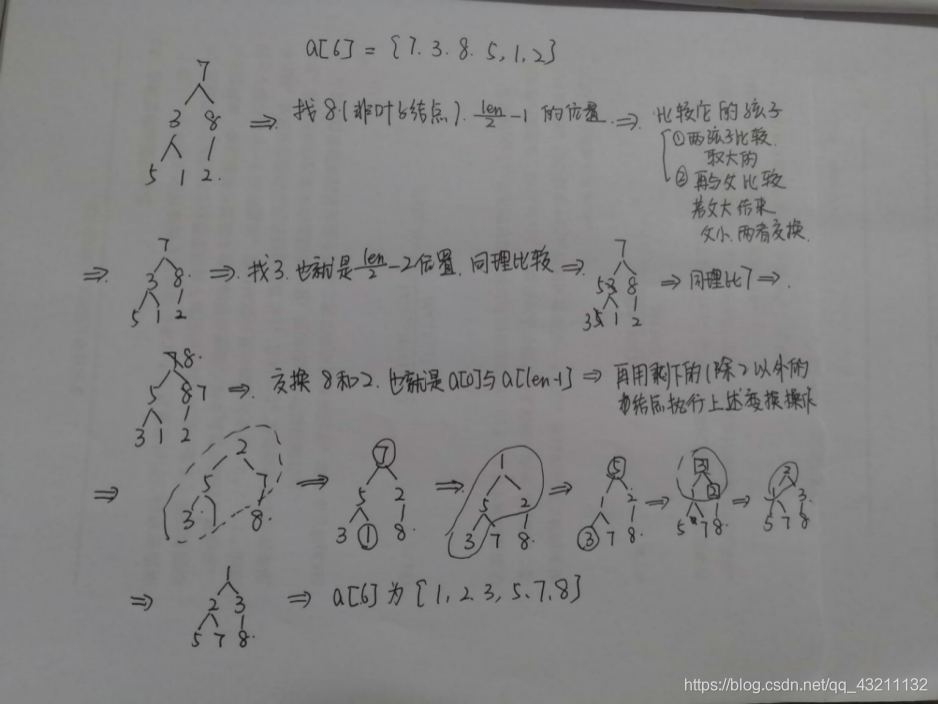 a[6] = {7.3.8.5,1,2}
7
3 8
5 1 2.
⇒ 找8.(非叶子结点). len/2 -1 的位置. ⇒ 比较它的孩子
①两孩子比较.
取大的
②再与父比较
若父大
父小.两者交换.
⇒ 7
3 8.
5 1 2
⇒. 找3.也就是 len/2 -2位置.同理比较 ⇒
7
53 8
35 1 2
⇒ 同理比7 ⇒.
78.
5 87
3 1 2
⇒. 交换8和2.也就是a[0]与a[len-1] ⇒ 再用剩下的(除)以外的
结点执行上述变换操作
⇒ 2
5 7
3. 1 8.
⇒ 7
5 2
3 1 8.
⇒ 1
5 2
3 7 8.
⇒ 5
1 2
3 7 8.
⇒ 3
1 2
5 7 8.
⇒ 2
1 3.
5 7 8
⇒ 1
2 3
5 7 8.
⇒ a[6]为{1,2.3,5.7.8}
https://blog.csdn.net/qq_43211132